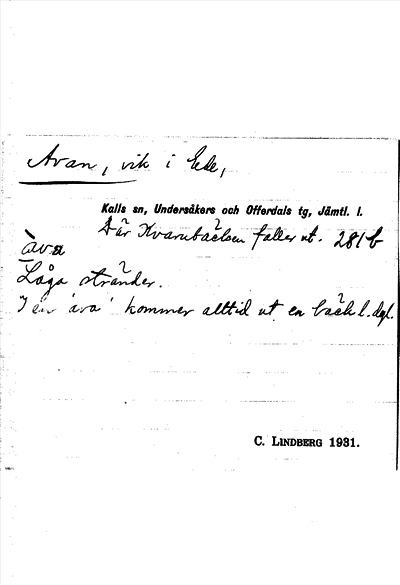 Avan, vik i Ede,
Kalls sn, Undersåkers och Offerdals tg, Jämtl. l.
Där Kvarnbäcken faller ut. 281b
àva
Låga stränder.
I en 'ava' kommer alltid ut en bäck l. dyl.
C. LINDBERG 1931.